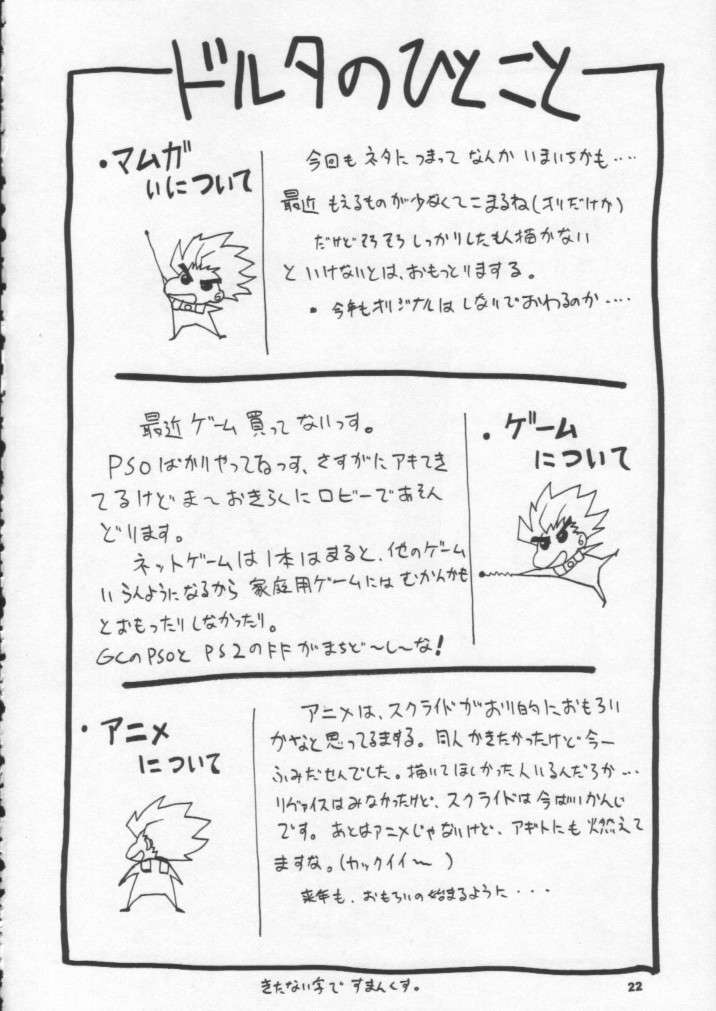 ドルタのひとこと
・マムガ
いについて
今回もネタにつまって なんか いまいちかも‥‥
最近 もえるものが少なくてこまるね(オリだけか)
だけどそろそろしっかりしたもん描かない
といけないとは、おもっとりまする。
・今年もオリジナルはしないでおわるのか‥‥
・ゲーム
について
最近ゲーム買ってないっす。
PSOばかりやってるっす、さすがにアキてき
てるけどま〜おきらくにロビーであそん
どります。
ネットゲームは1本はまると、他のゲーム
いらんようになるから 家庭用ゲームには むかんかも
とおもったりしなかったり。
GCのPSOと PS2のFFがまちど〜し〜な!
・アニメ
について
アニメは、スクライドがおり的におもろい
かなと思ってるまする。同人かきたかったけど今一
ふみだせんでした。描いてほしかった人いるんだろか‥‥
リヴァイスはみなかったけど、スクライドは今ばいかんじ
です。あとはアニメじゃないけど、アギトにも燃えて
ますな。(カックイイ〜)
来年も、おもろいの始まるように・・・
きたない字で すまんくす。
22